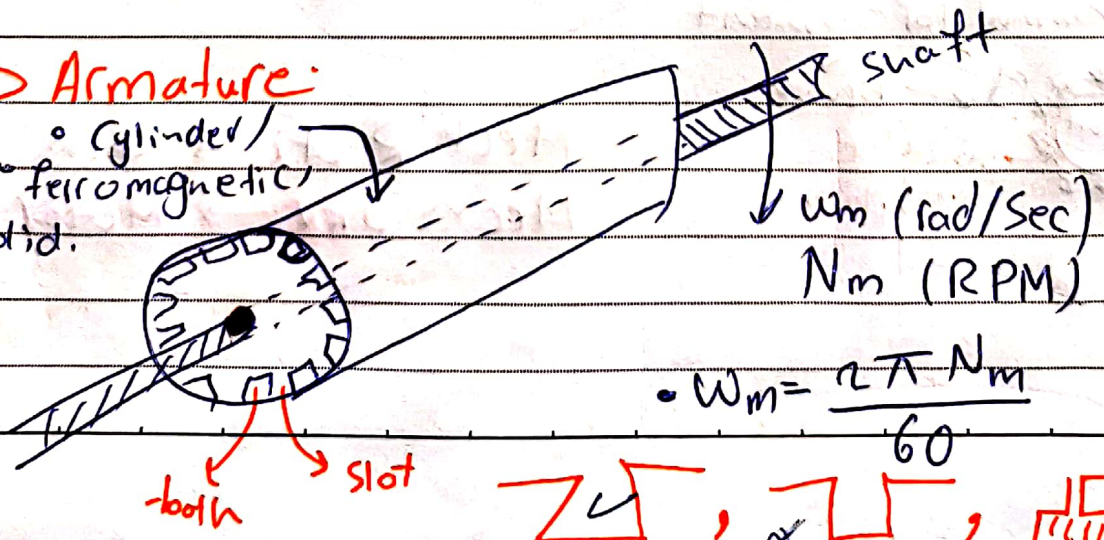 Armature:
shaft
• Cylinder/
• ferromagnetic/
ωm (rad/sec)
Nm (RPM)
• ωm = 2πNm / 60
tooth
slot